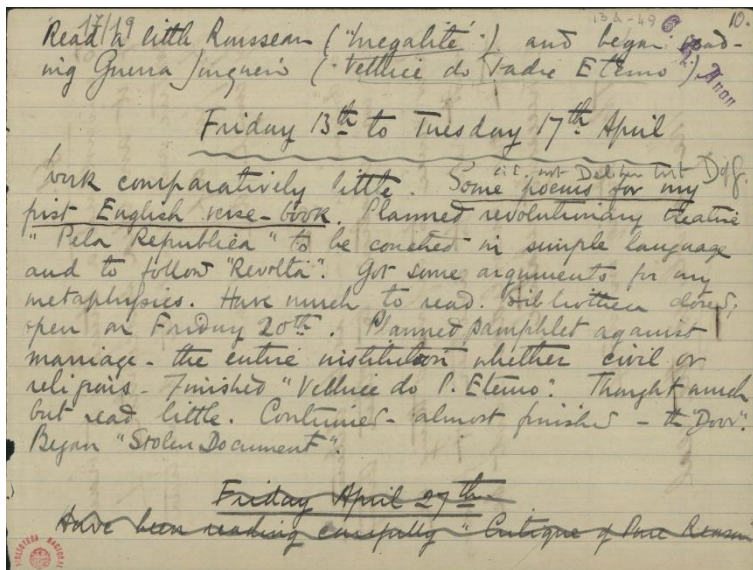 17/19
13A-49
10.
Read a little Rousseau ("Inegalité") and began read-
ing Guerra Junqueiro ("Velhice do Padre Eterno").
Friday 13th to Tuesday 17th April
i.e. not Del. but Def.
Work comparatively little. Some poems for my
first English verse-book. Planned revolutionary treatise
"Pela Republica" to be couched in simple language
and to follow "Revolta". Got some arguments for my
metaphysics. Have much to read. Bibliotheca closed;
open on Friday 20th. Planned pamphlet against
marriage - the entire institution whether civil or
religious - finished "Velhice do P. Eterno". Thought much
but read little. Continued - almost finished - the "Door".
Began "Stolen Document".
Friday April 27th
Have been reading carefully "Critique of Pure Reason
BIBLIOTECA NACIONAL